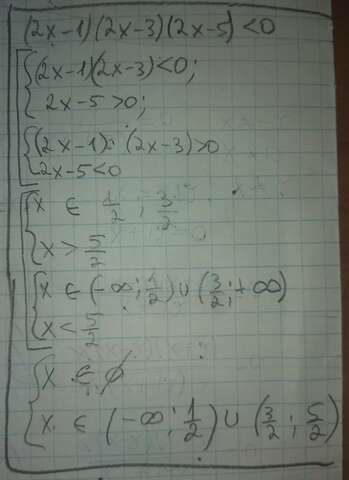 (2x-1)(2x-3)(2x-5)<0
(2x-1)(2x-3)<0;
2x-5>0;
(2x-1)·(2x-3)>0
2x-5<0
x ∈ 1/2 ; 3/2
x > 5/2
x ∈ (-∞; 1/2) ∪ (3/2; +∞)
x < 5/2
x ∈ ∅
x ∈ (-∞; 1/2) ∪ (3/2; 5/2)